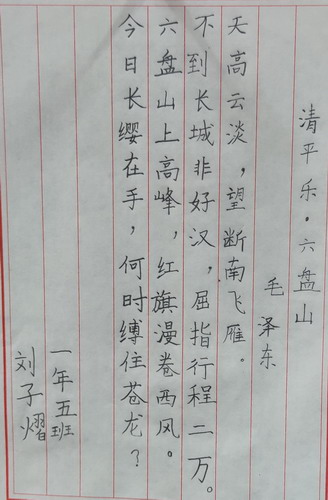 清平乐·六盘山
毛泽东
天高云淡，望断南飞雁。
不到长城非好汉，屈指行程二万。
六盘山上高峰，红旗漫卷西风。
今日长缨在手，何时缚住苍龙？
一年五班
刘子熠